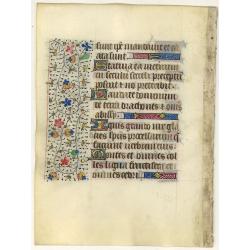 sunt ipe mandauit et cre
ata sunt
Statuit ea in eternum
et in seculum seculi preceptu
posuit et non preteribit
Laudate dominum
de terra drachones et oms
abissi
Ignis grando nix gla
cies sps procellarum que
faciunt verbum eius
Montes et omnes col
les ligna fructifera et
omnes cedri